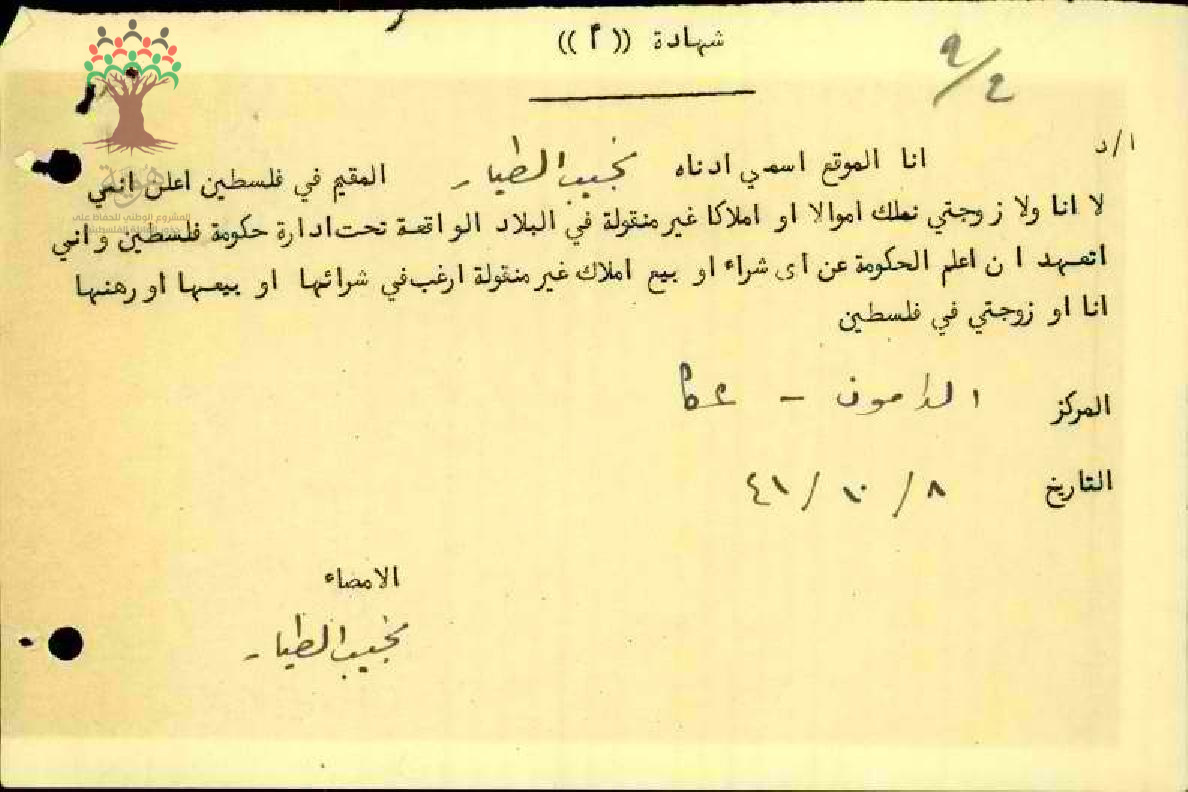 شهادة ((أ))
٩/٤
د/١
انا الموقع اسمي ادناه نجيب الطيار المقيم في فلسطين اعلن انني
لا انا ولا زوجتي نملك اموالا او املاكا غير منقولة في البلاد الواقعة تحت ادارة حكومة فلسطين واني
اتعهد ان اعلم الحكومة عن اى شراء او بيع املاك غير منقولة ارغب في شرائها او بيعها او رهنها
انا او زوجتي في فلسطين
المركز الدامون - عكا
التاريخ ٨ / ١٠ / ٤١
الامضاء
نجيب الطيار
هوية
المشروع الوطني للحفاظ على
جذور العائلة الفلسطينية